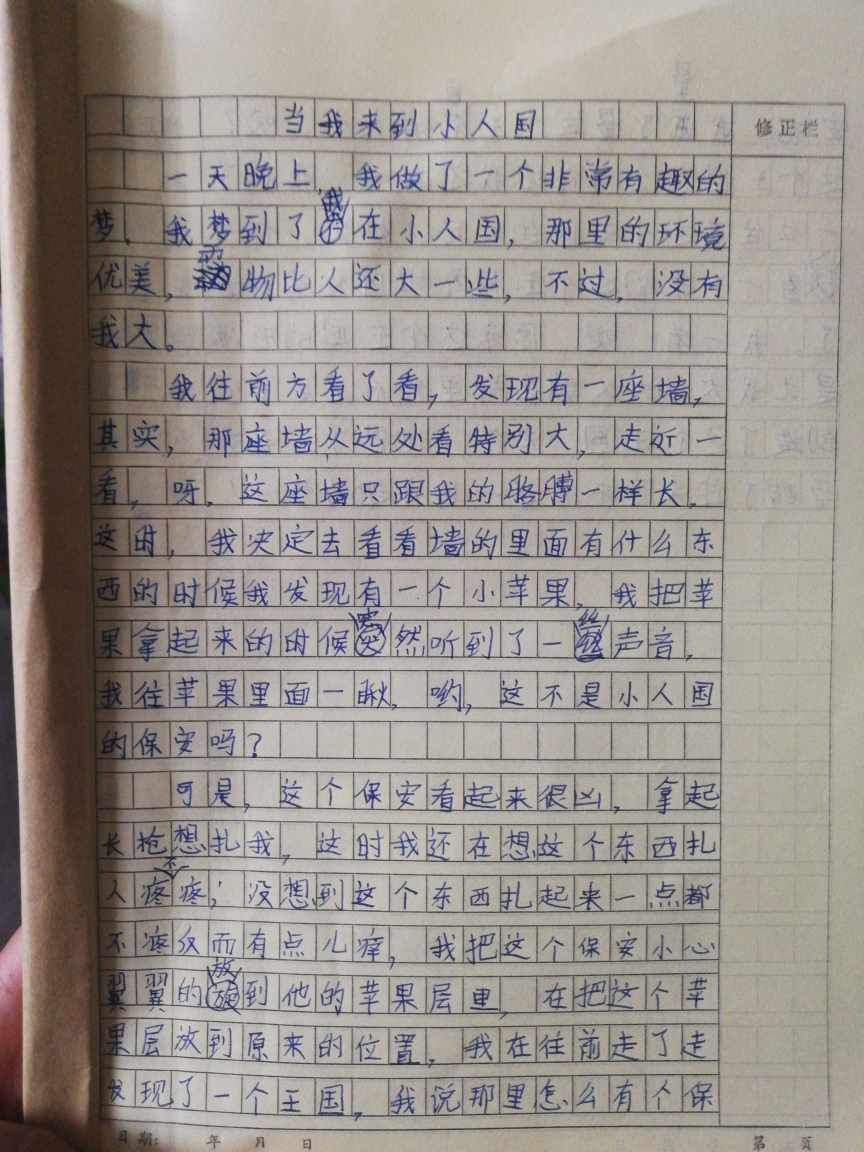 当我来到小人国
修正栏
一天晚上，我做了一个非常有趣的
梦，我梦到了我在小人国，那里的环境
优美，动物比人还大一些，不过，没有
我大。
我往前方看了看，发现有一座墙，
其实，那座墙从远处看特别大，走近一
看，呀，这座墙只跟我的胳膊一样长，
这时，我决定去看看墙的里面有什么东
西的时候我发现有一个小苹果，我把苹
果拿起来的时候突然听到了一丝声音，
我往苹果里面一瞅，哟，这不是小人国
的保安吗？
可是，这个保安看起来很凶，拿起
长枪想扎我，这时我还在想这个东西扎
人疼不疼；没想到这个东西扎起来一点都
不疼反而有点儿痒，我把这个保安小心
翼翼的放到他的苹果层里，在把这个苹
果层放到原来的位置，我在往前走了走
发现了一个王国，我说那里怎么有个保
日期： 年 月 日
第 页